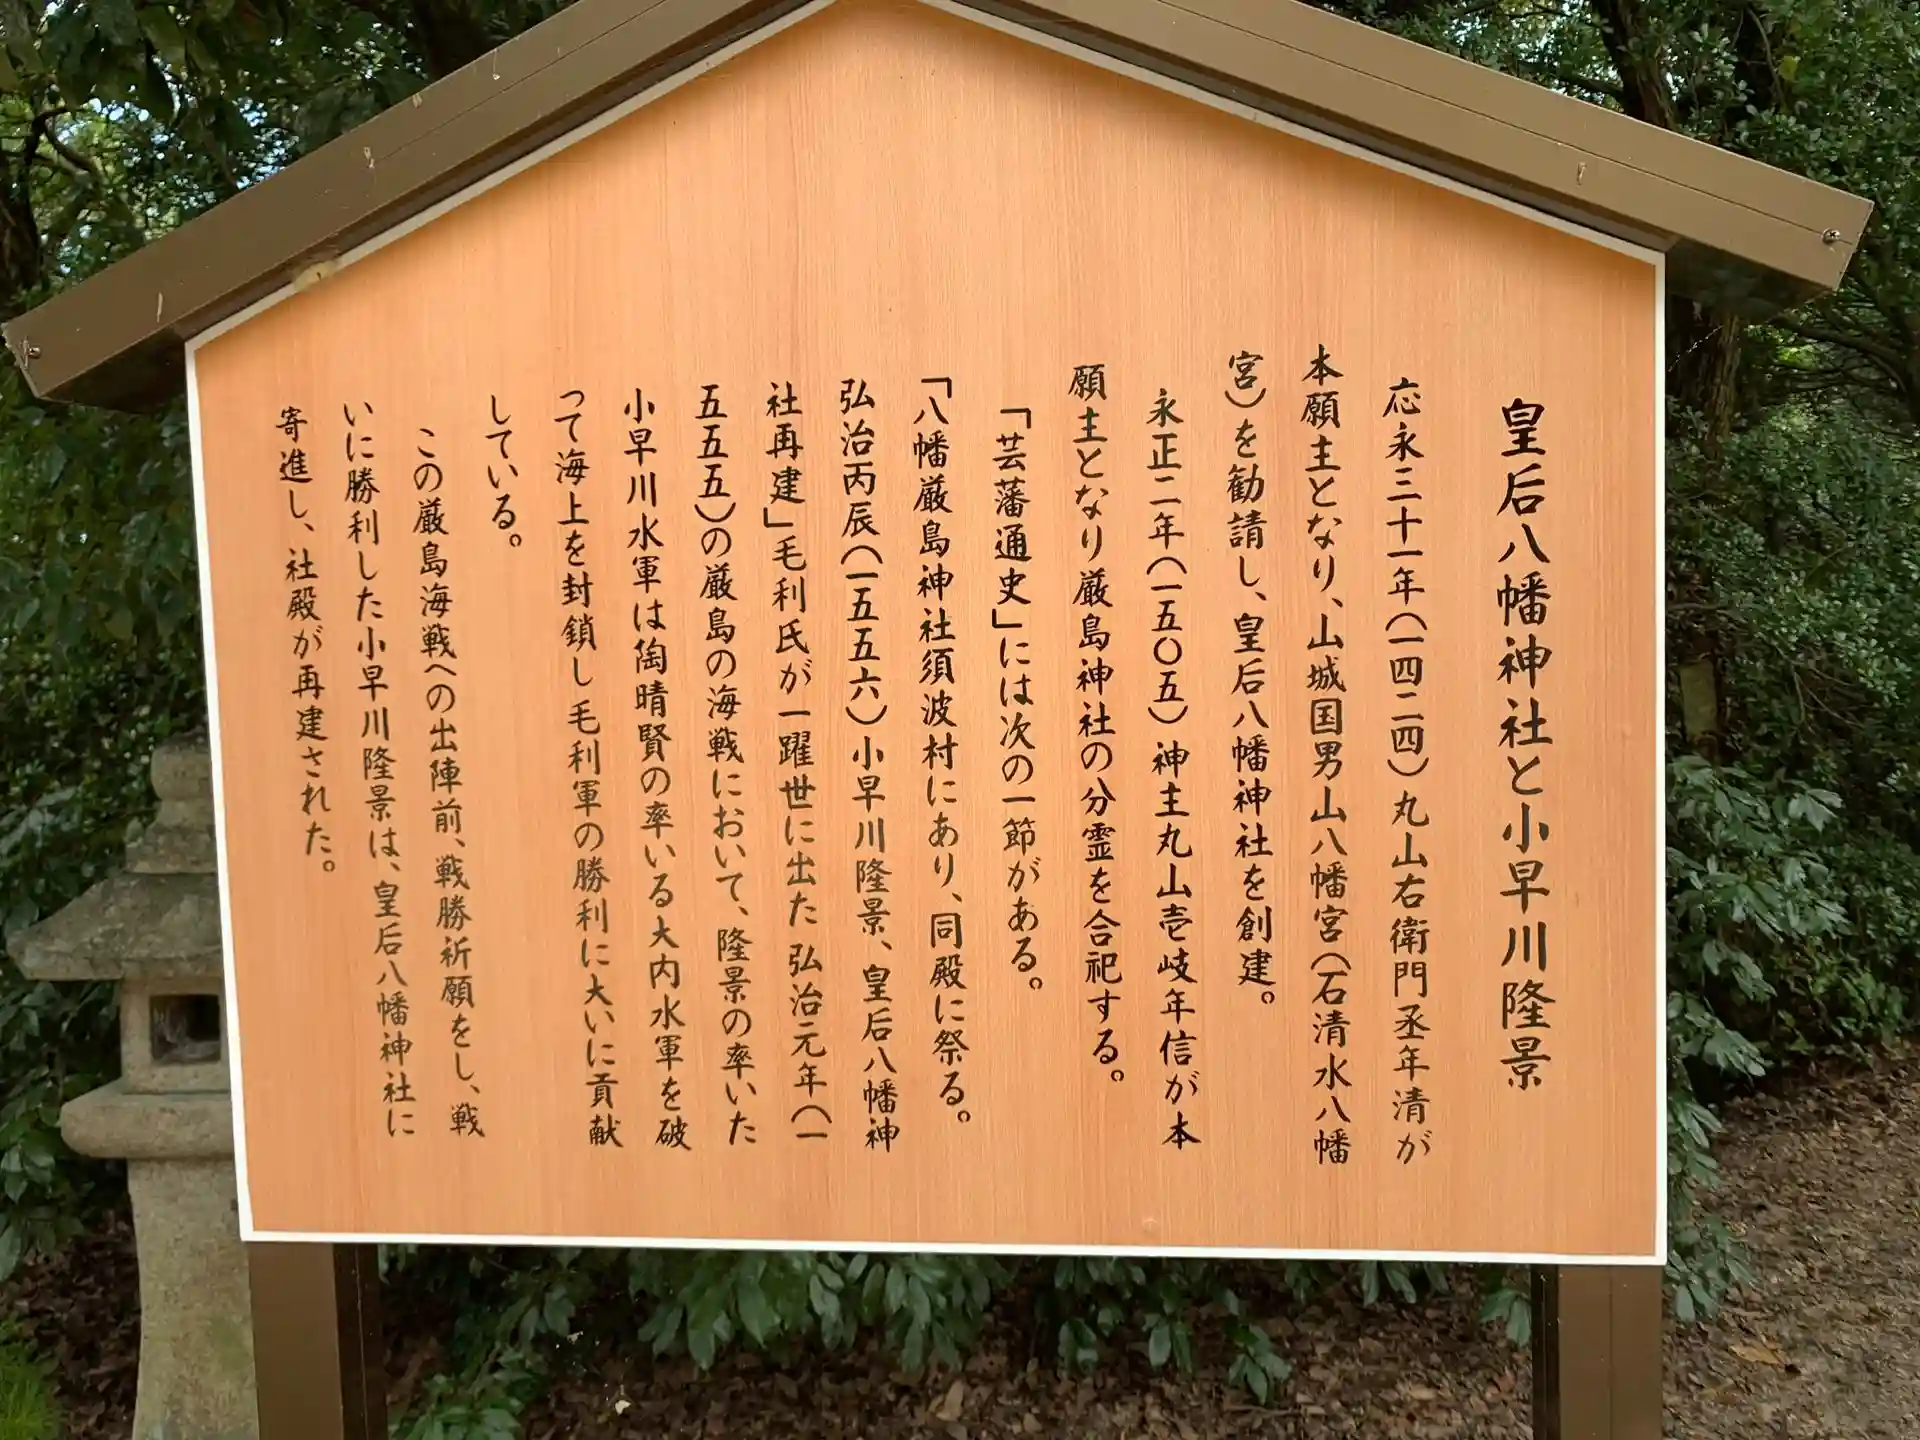 皇后八幡神社と小早川隆景
応永三十一年(一四二四)丸山右衛門丞年清が
本願主となり、山城国男山八幡宮(石清水八幡
宮)を勧請し、皇后八幡神社を創建。
永正二年(一五〇五)神主丸山壱岐年信が本
願主となり厳島神社の分霊を合祀する。
「芸藩通史」には次の一節がある。
「八幡厳島神社須波村にあり、同殿に祭る。
弘治丙辰(一五五六)小早川隆景、皇后八幡神
社再建」毛利氏が一躍世に出た弘治元年(一
五五五)の厳島の海戦において、隆景の率いた
小早川水軍は陶晴賢の率いる大内水軍を破
って海上を封鎖し毛利軍の勝利に大いに貢献
している。
この厳島海戦への出陣前、戦勝祈願をし、戦
いに勝利した小早川隆景は、皇后八幡神社に
寄進し、社殿が再建された。